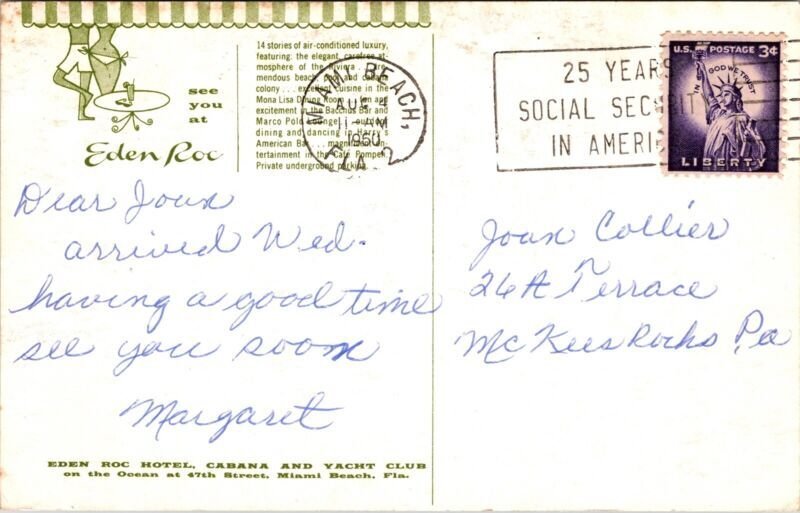 see
you
at
Eden Roc
14 stories of air-conditioned luxury,
featuring: the elegant, carefree at-
mosphere of the Riviera . . . tre-
mendous beach, pool and cabana
colony . . . excellent cuisine in the
Mona Lisa Dining Room . . . and
excitement in the Bacchus Bar and
Marco Polo Lounge . . . outdoor
dining and dancing in Harry's
American Bar . . . magnificent en-
tertainment in the Café Pompeii.
Private underground parking.
MIAMI BEACH,
AUG 4
11-AM
1960
FLA. 2
25 YEARS
SOCIAL SECURITY
IN AMERICA
U.S. POSTAGE 3¢
IN GOD WE TRUST
LIBERTY
Dear Joan
arrived Wed.
having a good time
see you soon
Margaret
Joan Collier
26A Terrace
McKees Rocks Pa
EDEN ROC HOTEL, CABANA AND YACHT CLUB
on the Ocean at 47th Street, Miami Beach, Fla.